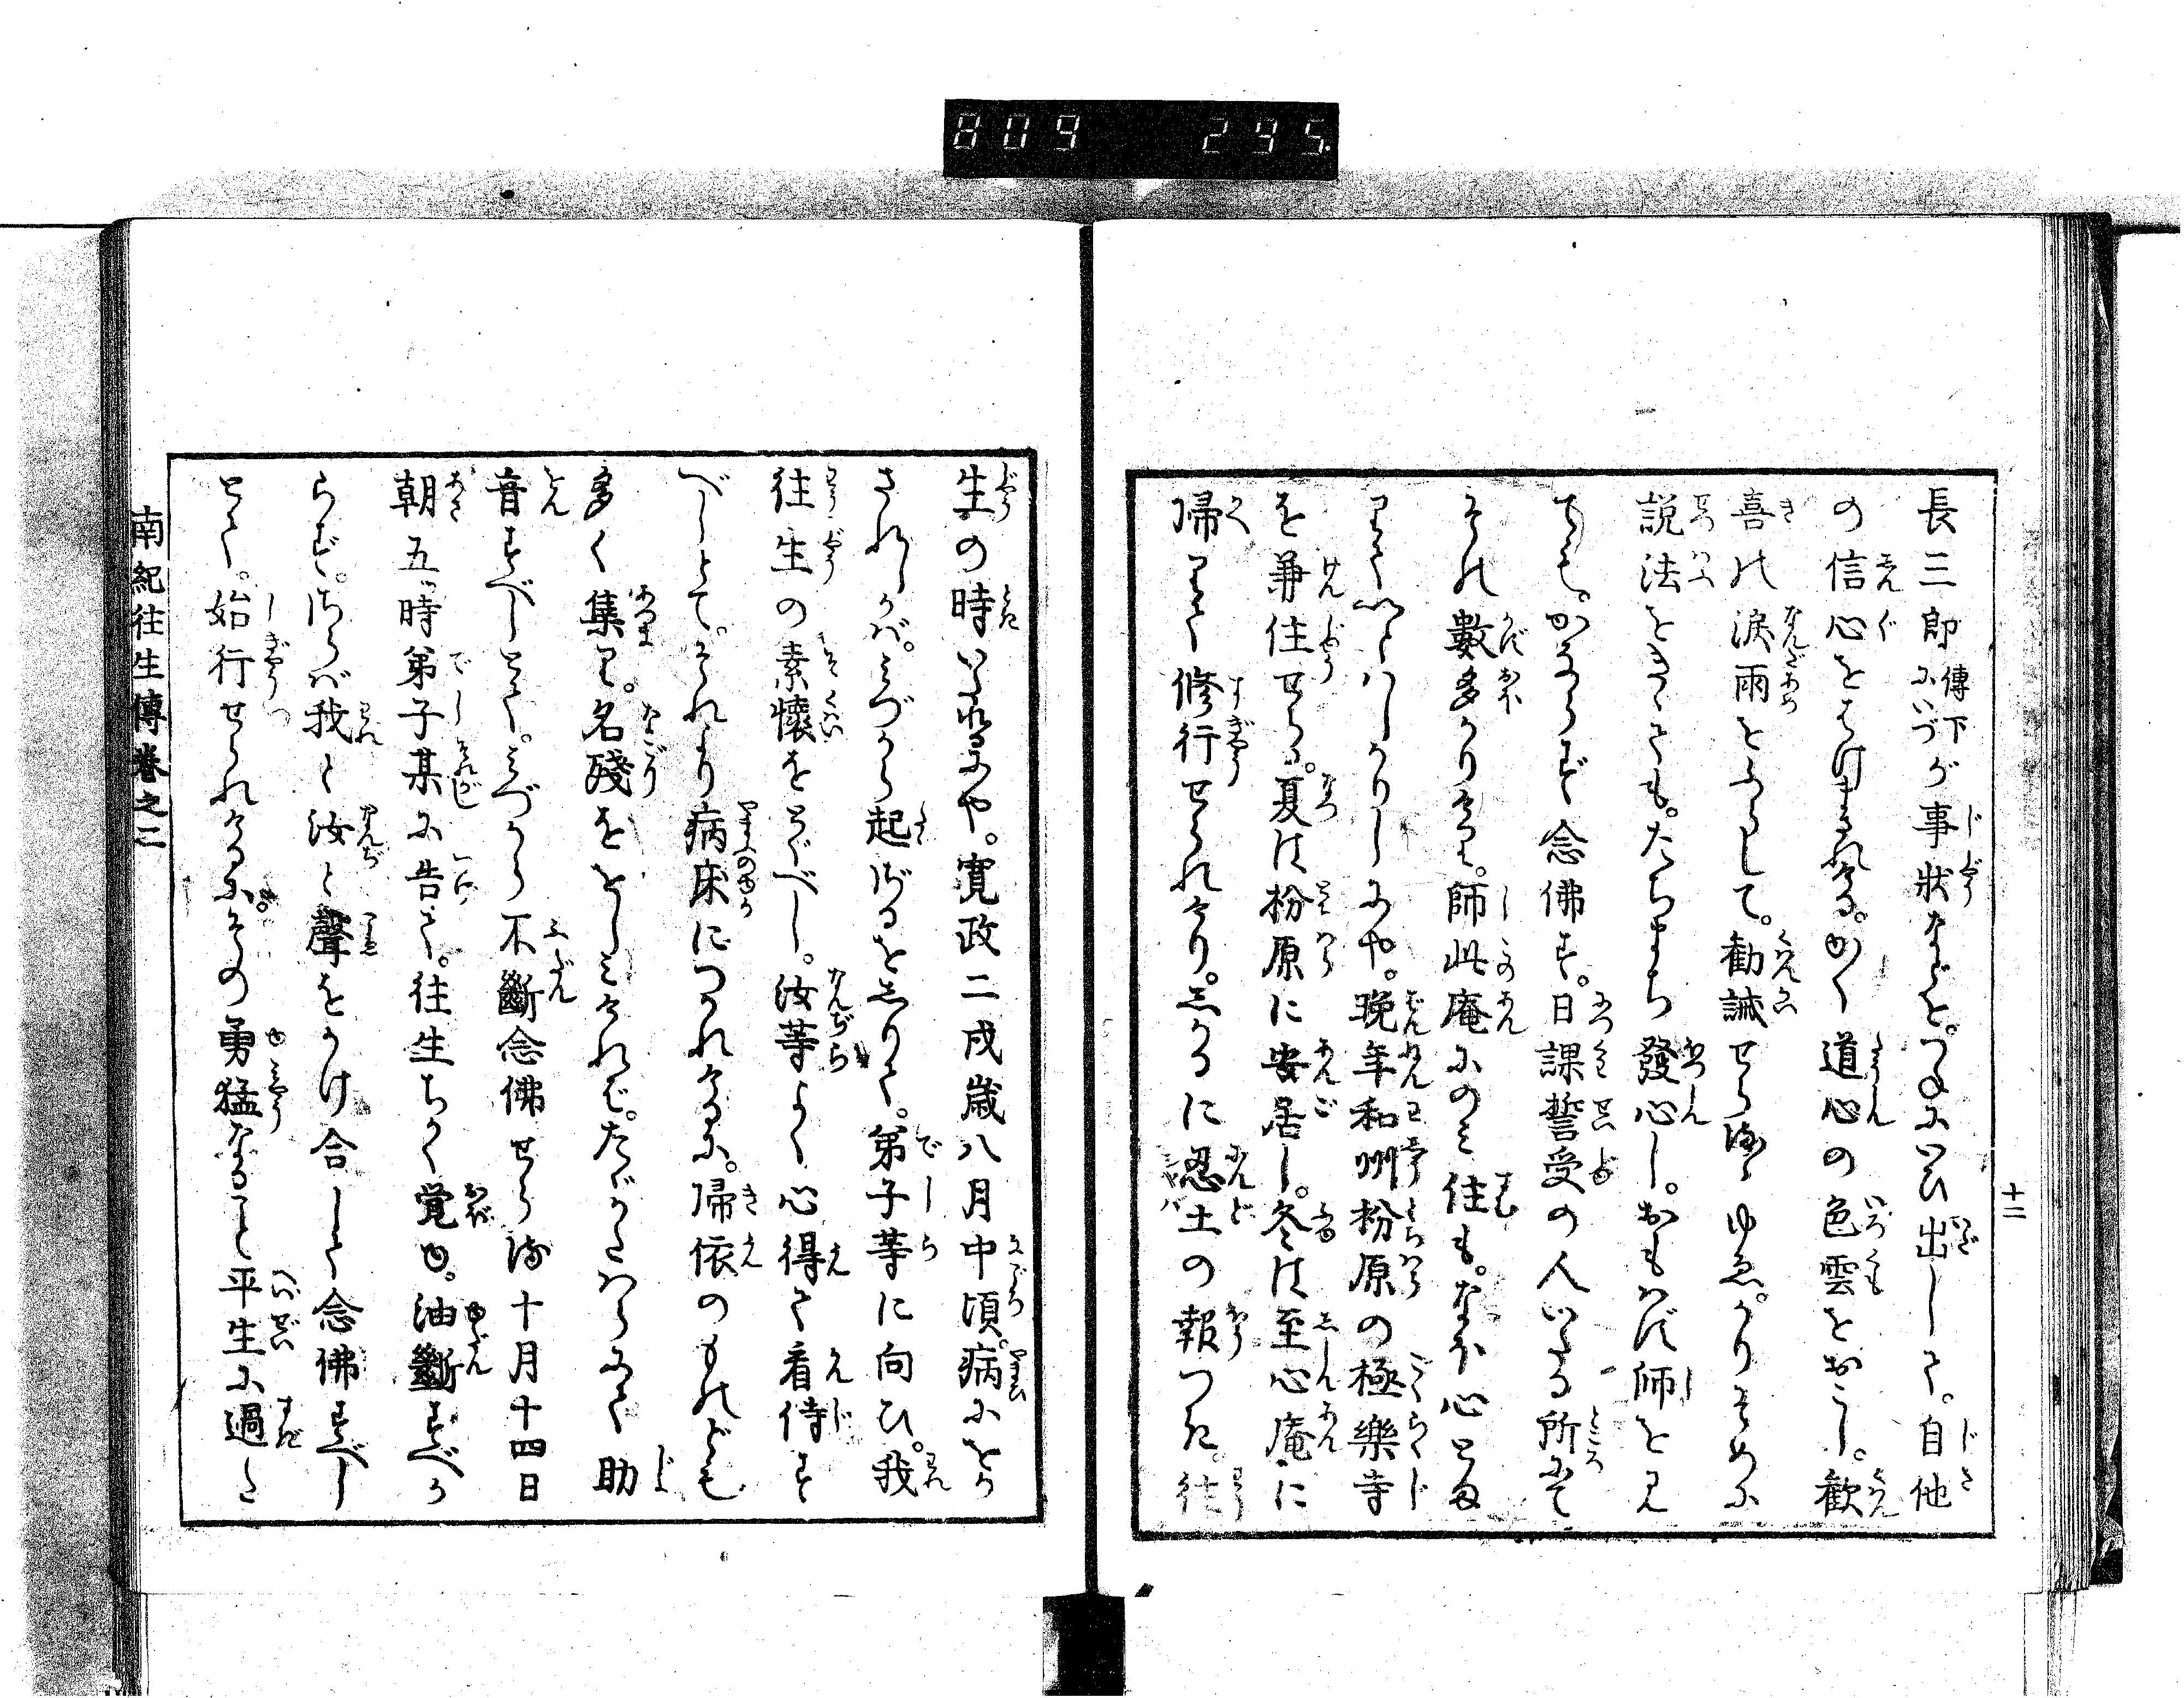 809 295.
十二
長三郎傳下にいづが事状などを。つねにいひ出して。自他
の信心をはげまれける。かく道心の色雲をおこし。歓
喜の涙雨をふらして。勧誡せらるゝゆゑ。かりそめに
説法をきくとも。たちまち發心し。おもはず師を見
ても。かならず念佛す。日課誓受の人いたる所にて
その數多かりけり。師此庵にのみ住も。なほ心とま
りていとはしかりしにや。晩年和州枌原の極樂寺
を兼住せらる。夏は枌原に安居し。冬は至心庵に
帰りて修行せられけり。しかるに忍土の報つき。往
生の時いたれるにや。寛政二戌歳八月中頃。病にをか
されしかば。みづから起ざるをしりて。弟子等に向ひ。我
往生の素懐をとぐべし。汝等よく心得て看侍す
べしとて。それより病床につかれけるに。帰依のものども
多く集り。名殘をおしみければ。たがひにかはらふく助
音すべしとて。みづから不斷念佛せらる十月十四日
朝五時弟子某に告て。往生ちかく覚ゆ。油斷すべか
らず。さらば我と汝と聲をかけ合して念佛すべし
とて。始行せられけるに。その勇猛なること平生に過た
南紀往生傳巻之二